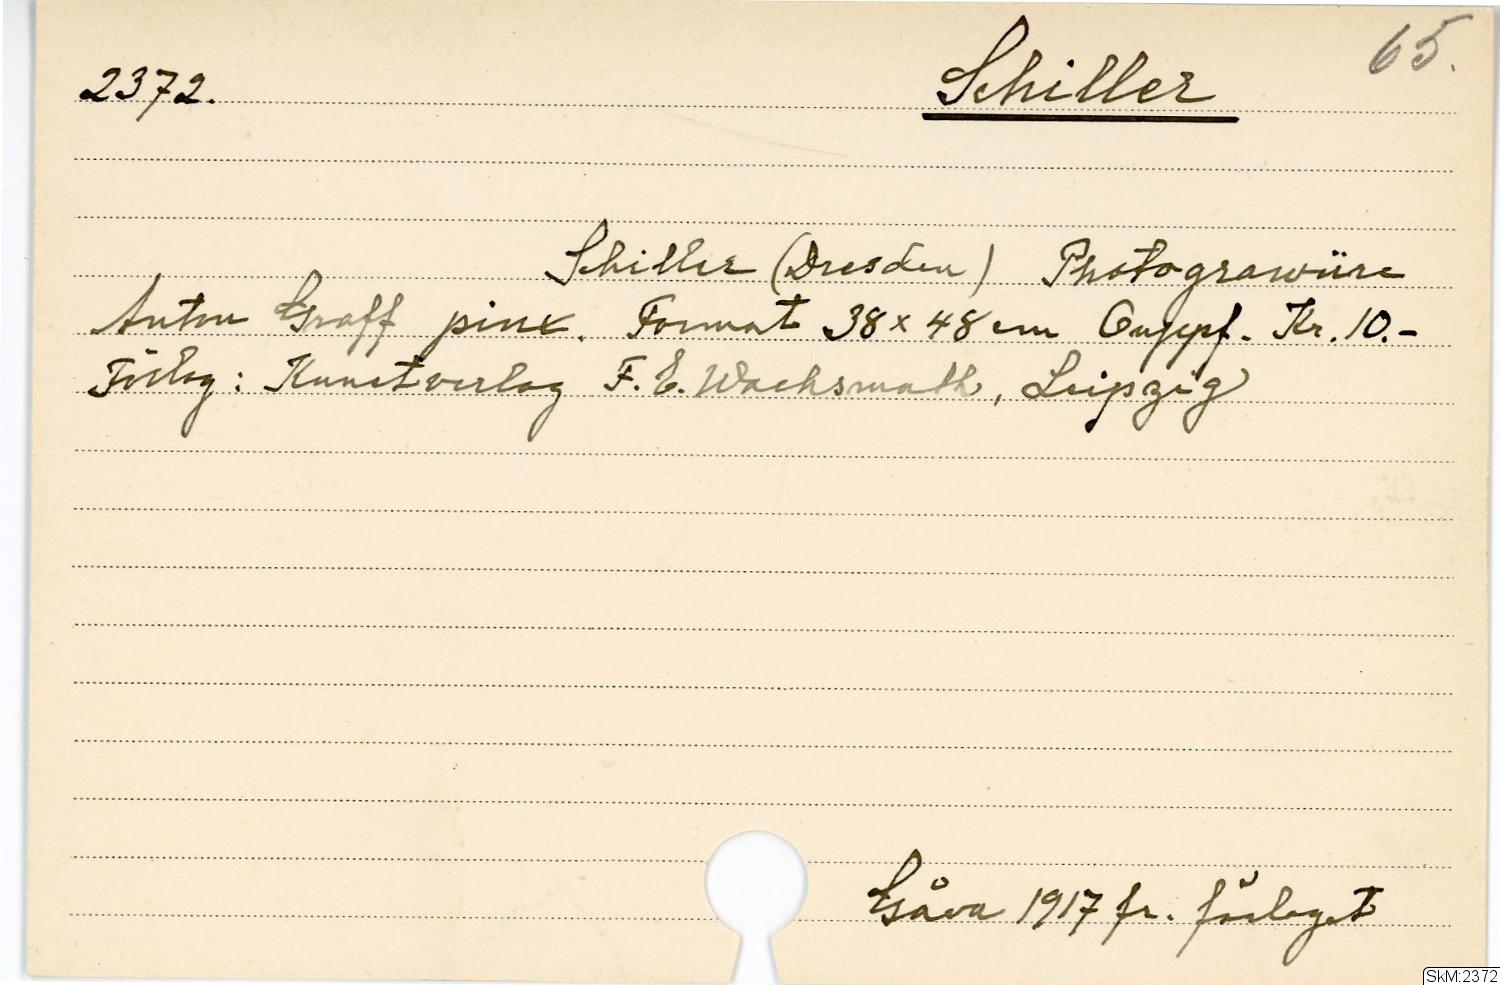 65.
2372. Schiller
Schiller (Dresden) Photograwüre
Anton Graff pinx. Format 38 x 48 cm Ouppf. Kr. 10.-
Förlag: Kunstverlag F. E. Wachsmuth, Leipzig
Gåva 1917 fr. förlaget
SkM:2372